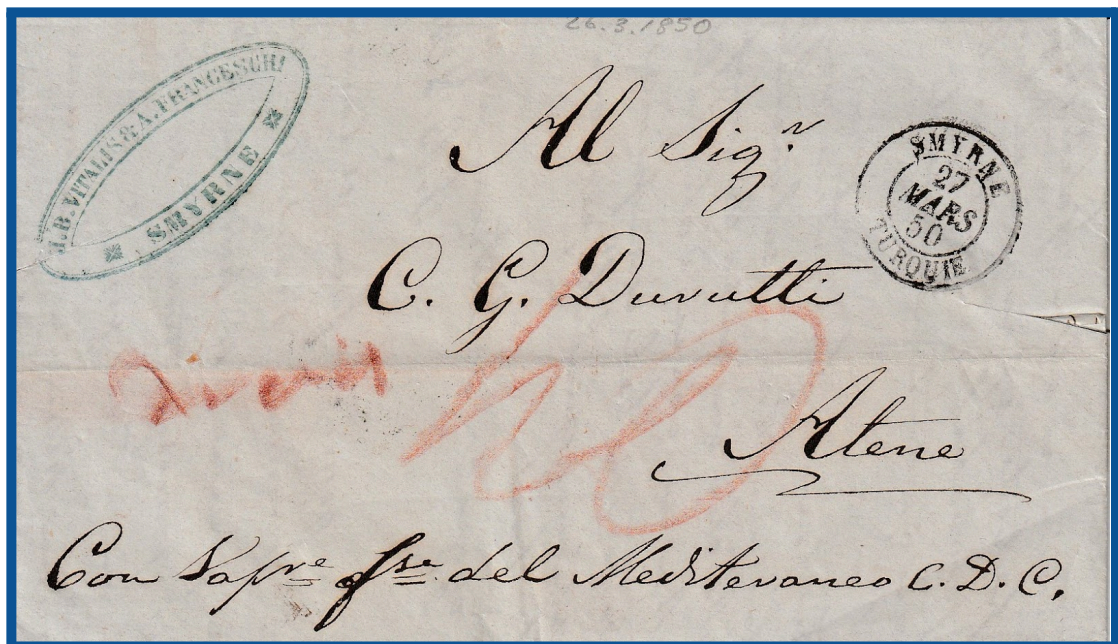 26.3.1850
J.B. VITALIS & A. FRANCESCHI
SMYRNE
Al Sig.r
SMYRNE
27
MARS
50
TURQUIE
C. G. Durutti
Atene
Con Vap.re f.se del Mediteraneo C. D. C.